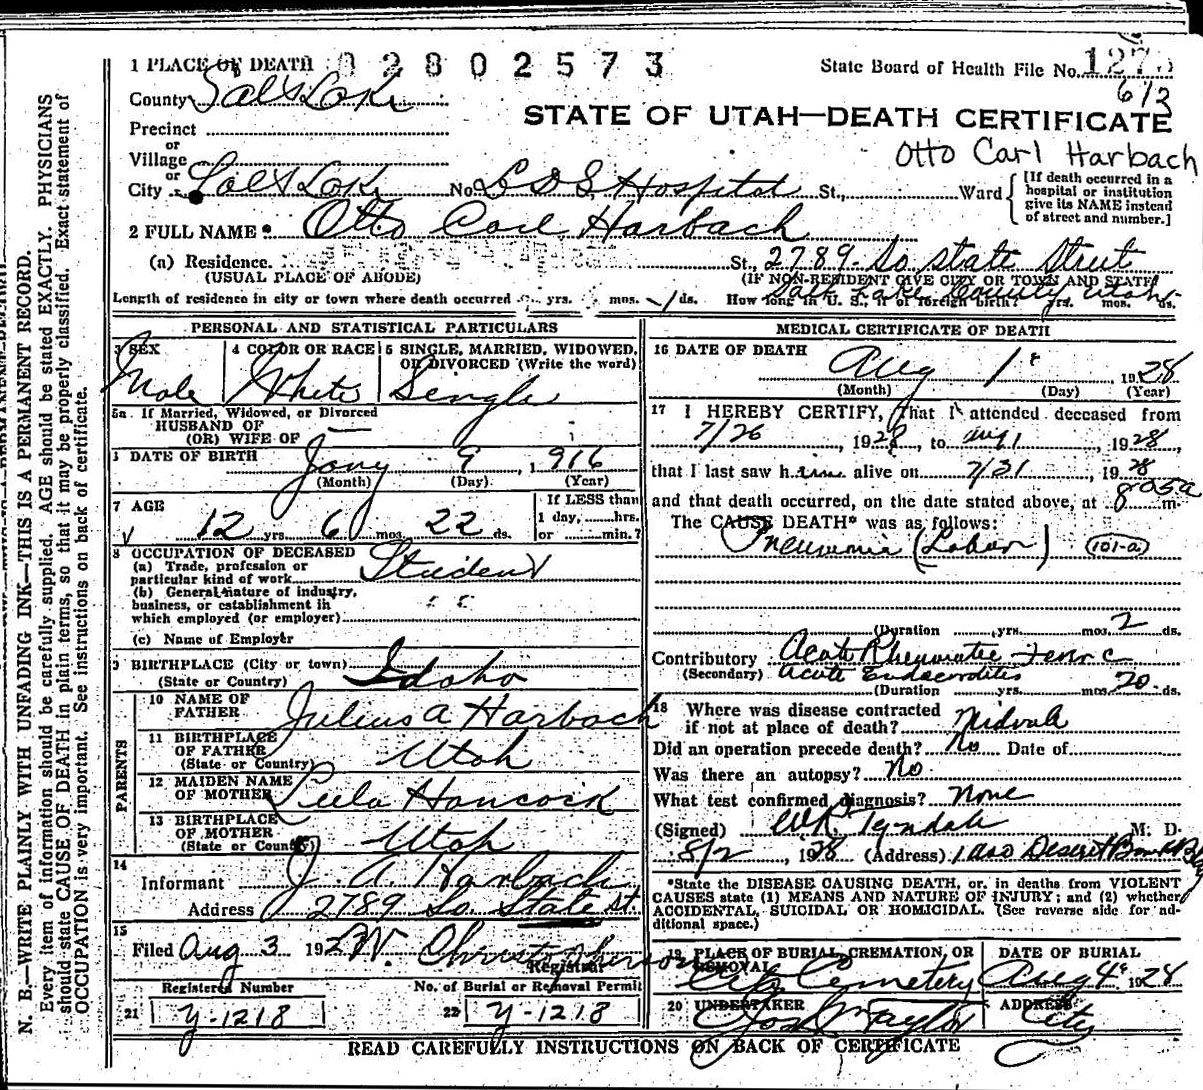 1 PLACE OF DEATH 02802573
State Board of Health File No. 1275
County Salt Lake
612
STATE OF UTAH—DEATH CERTIFICATE
Precinct
or
Village
or
Otto Carl Harbach
City Salt Lake No. L D S Hospital St., Ward
[If death occurred in a hospital or institution give its NAME instead of street and number.]
2 FULL NAME Otto Carl Harbach
(a) Residence. St., 2789 So State Street
(USUAL PLACE OF ABODE)
(IF NON-RESIDENT GIVE CITY OR TOWN AND STATE)
Salt Lake County Utah
Length of residence in city or town where death occurred yrs. mos. 1 ds. How long in U. S., if of foreign birth? yrs. mos. ds.
PERSONAL AND STATISTICAL PARTICULARS
3 SEX
Male
4 COLOR OR RACE
White
5 SINGLE, MARRIED, WIDOWED, OR DIVORCED (Write the word)
Single
5a If Married, Widowed, or Divorced
HUSBAND OF
(OR) WIFE OF
DATE OF BIRTH Jany 9, 1916
(Month) (Day) (Year)
7 AGE
12 yrs 6 mos. 22 ds.
If LESS than
1 day, hrs.
or min.?
8 OCCUPATION OF DECEASED
(a) Trade, profession or
particular kind of work Student
(b) General nature of industry,
business, or establishment in
which employed (or employer)
(c) Name of Employer
9 BIRTHPLACE (City or town)
(State or Country) Idaho
PARENTS
10 NAME OF
FATHER Julius A Harbach
11 BIRTHPLACE
OF FATHER
(State or Country) Utah
12 MAIDEN NAME
OF MOTHER Hancock
13 BIRTHPLACE
OF MOTHER
(State or Country) Utah
14
Informant J. A. Harbach
Address 2789 So. State St.
15
Filed Aug 3 192 W. Christopherson
Registrar
Registered Number
21 Y-1218
No. of Burial or Removal Permit
22 Y-1218
MEDICAL CERTIFICATE OF DEATH
16 DATE OF DEATH
Aug 1 1928
(Month) (Day) (Year)
17 I HEREBY CERTIFY, That I attended deceased from
7/26, 1928, to Aug 1, 1928,
that I last saw him alive on 7/31, 1928
and that death occurred, on the date stated above, at 805a m.
The CAUSE DEATH* was as follows:
Pneumonia (Lobar) (101-a)
(Duration yrs. mos. 2 ds.
Contributory Acute Rheumatic Fever
(Secondary) Acute Endocarditis
(Duration yrs. mos. 20 ds.
18 Where was disease contracted
if not at place of death? Midvale
Did an operation precede death? No Date of
Was there an autopsy? No
What test confirmed diagnosis? None
(Signed) W R. Tyndale M. D.
8/2, 1928 (Address) Deseret Bank Bldg
*State the DISEASE CAUSING DEATH, or, in deaths from VIOLENT
CAUSES state (1) MEANS AND NATURE OF INJURY; and (2) whether
ACCIDENTAL, SUICIDAL OR HOMICIDAL. (See reverse side for additional space.)
19 PLACE OF BURIAL, CREMATION, OR
REMOVAL
City Cemetery
DATE OF BURIAL
Aug 4 1928
20 UNDERTAKER
Jos Wm Taylor
ADDRESS
City
READ CAREFULLY INSTRUCTIONS ON BACK OF CERTIFICATE
N. B.—WRITE PLAINLY WITH UNFADING INK—THIS IS A PERMANENT RECORD.
Every item of information should be carefully supplied. AGE should be stated EXACTLY. PHYSICIANS
should state CAUSE OF DEATH in plain terms, so that it may be properly classified. Exact statement of
OCCUPATION is very important. See instructions on back of certificate.